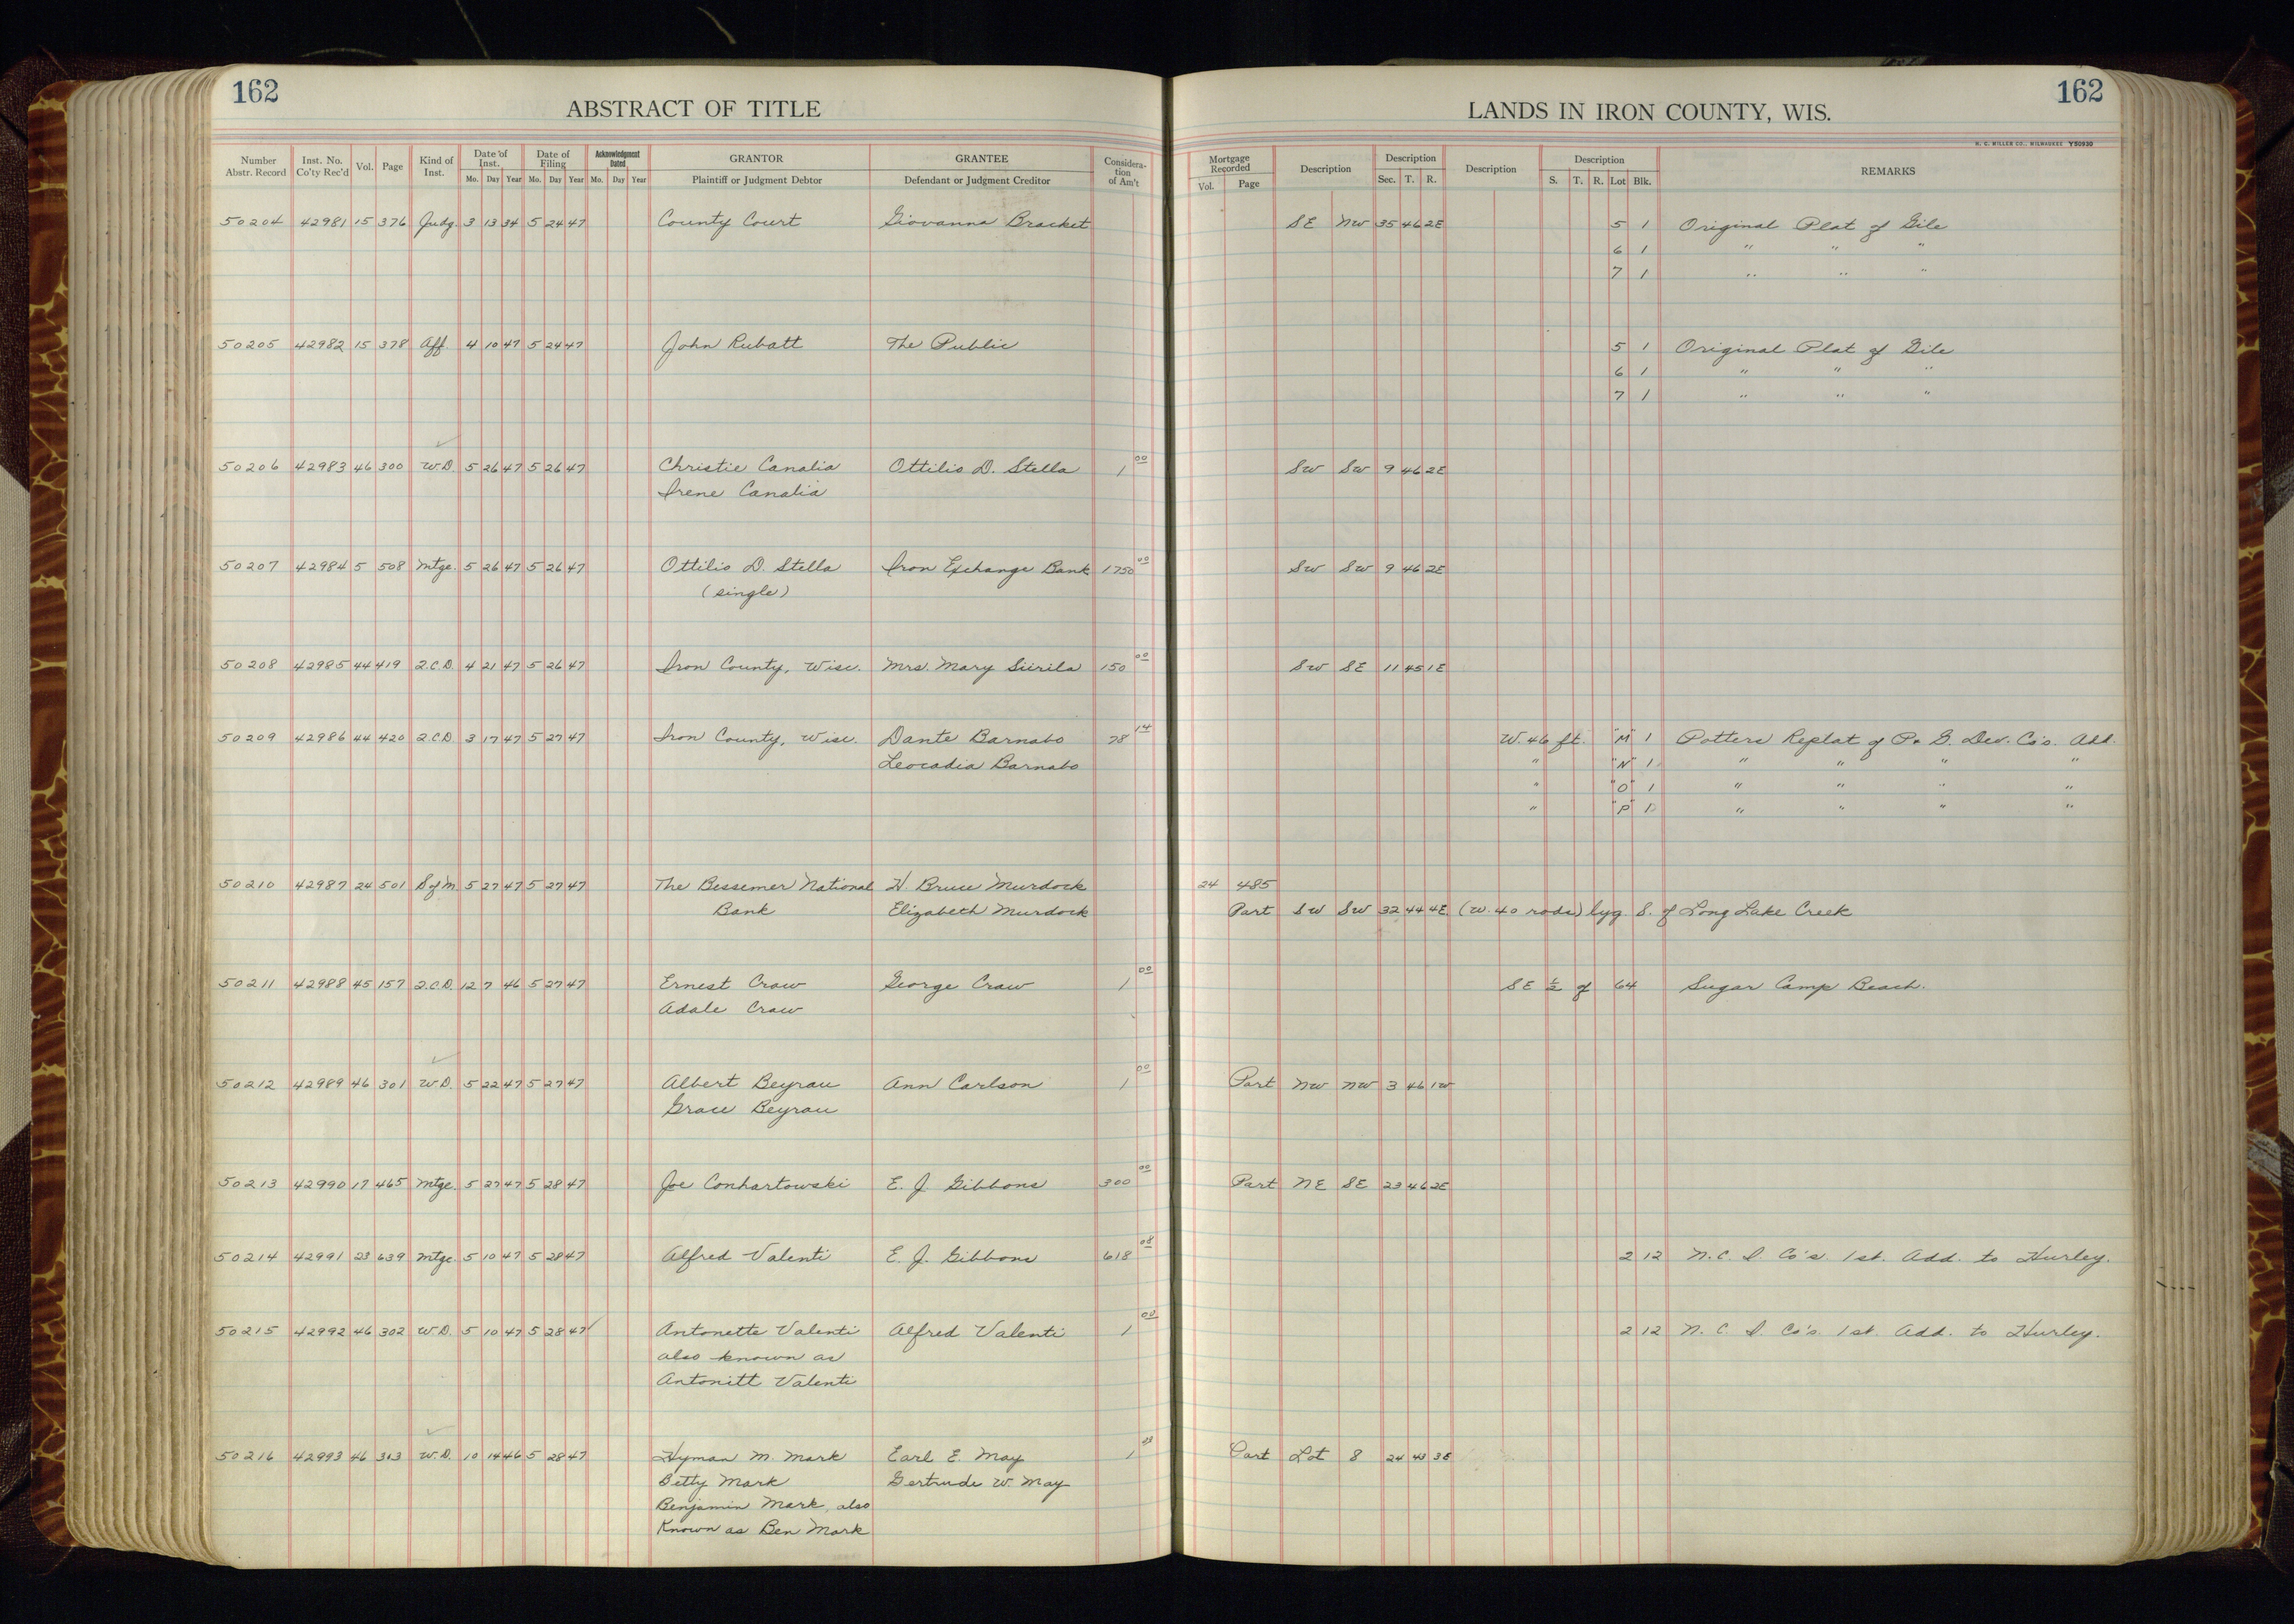 162
ABSTRACT OF TITLE
LANDS IN IRON COUNTY, WIS.
162
H. C. MILLER CO., MILWAUKEE Y50930
Number Abstr. Record Inst. No. Co'ty Rec'd Vol. Page Kind of Inst. Date of Inst. Mo. Day Year Date of Filing Mo. Day Year Acknowledgment Dated Mo. Day Year GRANTOR Plaintiff or Judgment Debtor GRANTEE Defendant or Judgment Creditor Considera-tion of Am't Mortgage Recorded Vol. Page Description Description Sec. T. R. Description Description S. T. R. Lot Blk. REMARKS
50204 42981 15 376 Judg. 3 13 34 5 24 47 County Court Giovanna Bracket SE NW 35 46 2E 5 1 Original Plat of Gile
6 1 " " "
7 1 " " "
50205 42982 15 378 Aff. 4 10 47 5 24 47 John Rubatt The Public 5 1 Original Plat of Gile
6 1 " " "
7 1 " " "
50206 42983 46 300 W.D. 5 26 47 5 26 47 Christie Canalia Ottilio D. Stella 1 00 SW SW 9 46 2E
Irene Canalia
50207 42984 5 508 Mtge. 5 26 47 5 26 47 Ottilio D. Stella Iron Exchange Bank 1750 00 SW SW 9 46 2E
(single)
50208 42985 44 419 2.C.D. 4 21 47 5 26 47 Iron County, Wisc. Mrs. Mary Siirila 150 00 SW SE 11 45 1E
50209 42986 44 420 2.C.D. 3 17 47 5 27 47 Iron County, Wisc. Dante Barnabo 78 14 W. 46 ft. "M" 1 Potters Replat of P. & G. Dev. Co's. Add.
Leocadia Barnabo " "N" 1 " " " "
" "O" 1 " " " "
" "P" 1 " " " "
50210 42987 24 501 S of M 5 27 47 5 27 47 The Bessemer National H. Bruce Murdock 24 485
Bank Elizabeth Murdock Part SW SW 32 44 4E (W. 40 rods) lyg S. of Long Lake Creek
50211 42988 45 157 2.C.D. 12 7 46 5 27 47 Ernest Craw George Craw 1 00 SE ½ of 64 Sugar Camp Beach.
Adale Craw
50212 42989 46 301 W.D. 5 22 47 5 27 47 Albert Beyrau Ann Carlson 1 00 Part NW NW 3 46 1W
Grace Beyrau
50213 42990 17 465 Mtge. 5 27 47 5 28 47 Joe Conhartowski E. J. Gibbons 300 00 Part NE SE 23 46 2E
50214 42991 23 639 Mtge. 5 10 47 5 28 47 Alfred Valenti E. J. Gibbons 618 08 2 12 N. C. I. Co's. 1st. Add. to Hurley.
50215 42992 46 302 W.D. 5 10 47 5 28 47 Antonette Valenti Alfred Valenti 1 00 2 12 N. C. I. Co's. 1st. Add. to Hurley.
also known as
Antonitt Valenti
50216 42993 46 313 W.D. 10 14 46 5 28 47 Hyman M. Mark Earl E. May 1 Part Lot 8 24 43 3E
Betty Mark Gertrude W. May
Benjamin Mark, also
Known as Ben Mark